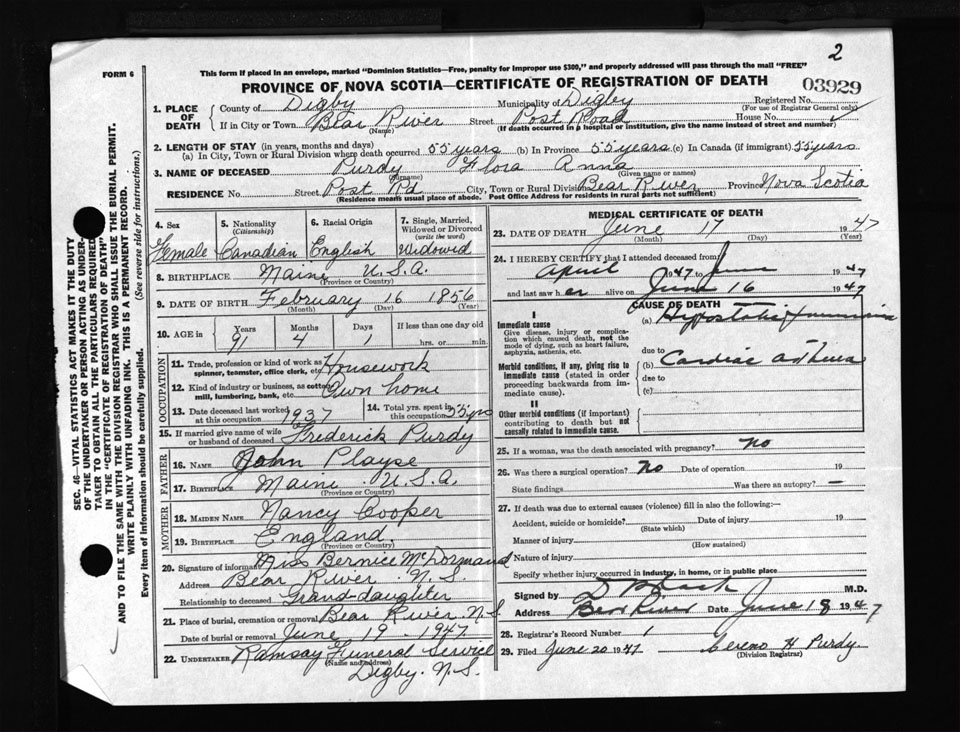 2
FORM 6
This form if placed in an envelope, marked "Dominion Statistics—Free, penalty for improper use $300," and properly addressed will pass through the mail "FREE"
PROVINCE OF NOVA SCOTIA—CERTIFICATE OF REGISTRATION OF DEATH
03929
1. PLACE OF DEATH County of Digby Municipality of Digby Registered No.
(For use of Registrar General only)
If in City or Town Bear River Street Post Road House No.
(Name) (If death occurred in a hospital or institution, give the name instead of street and number)
2. LENGTH OF STAY (in years, months and days)
(a) In City, Town or Rural Division where death occurred 55 years (b) In Province 55 years (c) In Canada (if immigrant) 55 years
3. NAME OF DECEASED Purdy Flora Anna
(Surname) (Given name or names)
RESIDENCE No. Street Post Rd City, Town or Rural Division Bear River Province Nova Scotia
(Residence means usual place of abode. Post Office Address for residents in rural parts not sufficient)
SEC. 46—VITAL STATISTICS ACT MAKES IT THE DUTY
OF THE UNDERTAKER OR PERSON ACTING AS UNDER-
TAKER TO OBTAIN ALL THE PARTICULARS REQUIRED
IN THE "CERTIFICATE OF REGISTRATION OF DEATH"
AND TO FILE THE SAME WITH THE DIVISION REGISTRAR WHO SHALL ISSUE THE BURIAL PERMIT.
WRITE PLAINLY WITH UNFADING INK. THIS IS A PERMANENT RECORD.
Every item of information should be carefully supplied. (See reverse side for instructions.)
4. Sex
Female
5. Nationality
(Citizenship)
Canadian
6. Racial Origin
English
7. Single, Married, Widowed or Divorced
(write the word)
Widowed
8. BIRTHPLACE Maine U.S.A.
(Province or Country)
9. DATE OF BIRTH February 16 1856
(Month) (Day) (Year)
10. AGE in Years Months Days If less than one day old
91 4 1 hrs. or min.
OCCUPATION
11. Trade, profession or kind of work as spinner, teamster, office clerk, etc. Housework
12. Kind of industry or business, as cotton mill, lumbering, bank, etc. Own home
13. Date deceased last worked at this occupation 1937
14. Total yrs. spent in this occupation 55 yrs
15. If married give name of wife or husband of deceased Frederick Purdy
FATHER
16. NAME John Playse
17. BIRTHPLACE Maine U.S.A.
(Province or Country)
MOTHER
18. MAIDEN NAME Nancy Cooper
19. BIRTHPLACE England.
(Province or Country)
20. Signature of informant Miss Bernice McDormand
Address Bear River N.S.
Relationship to deceased Grand-daughter
21. Place of burial, cremation or removal Bear River, N.S.
Date of burial or removal June 19 - 1947
22. UNDERTAKER Ramsay Funeral Service
(Name and address)
Digby. N.S.
MEDICAL CERTIFICATE OF DEATH
23. DATE OF DEATH June 17 1947
(Month) (Day) (Year)
24. I HEREBY CERTIFY that I attended deceased from
April 1947 to June 1947
and last saw her alive on June 16 1947
CAUSE OF DEATH
I
Immediate cause
Give disease, injury or complication which caused death, not the mode of dying, such as heart failure, asphyxia, asthenia, etc.
(a) Hypostatic
due to
Morbid conditions, if any, giving rise to immediate cause (stated in order proceeding backwards from immediate cause).
(b) Cardiac asthma
due to
(c)
II
Other morbid conditions (if important) contributing to death but not causally related to immediate cause.
25. If a woman, was the death associated with pregnancy? No
26. Was there a surgical operation? No Date of operation 19
State findings Was there an autopsy? —
27. If death was due to external causes (violence) fill in also the following:—
Accident, suicide or homicide? Date of injury 19
(State which)
Manner of injury
(How sustained)
Nature of injury
Specify whether injury occurred in industry, in home, or in public place
Signed by M.D.
Address Bear River Date June 18 1947
28. Registrar's Record Number 1
29. Filed June 20 1947 Cereno H Purdy.
(Division Registrar)